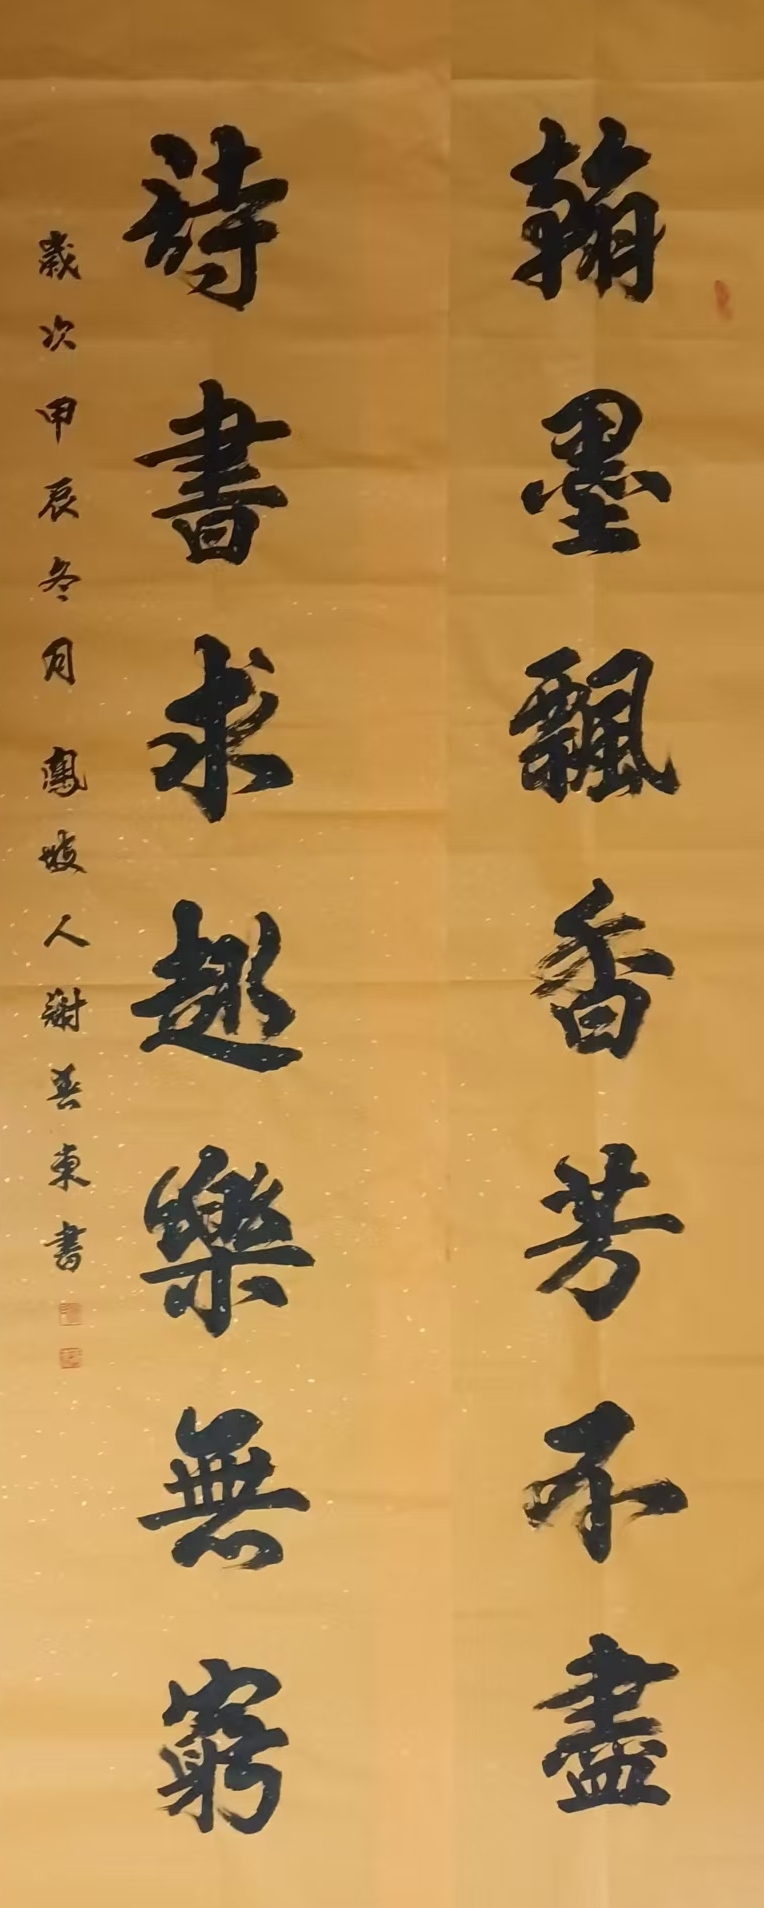 翰墨飄香芳不盡
詩書求趣樂無窮
歲次甲辰冬月鳳坡人謝其東書